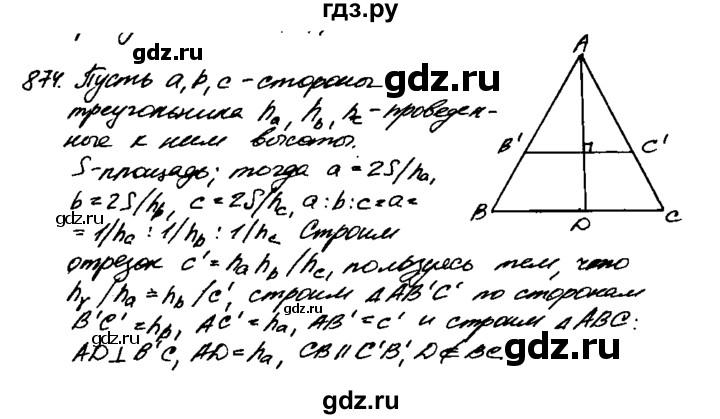 гдз.ру
gdz.ru
874. Пусть a, b, c - стороны
gdz.ru
треугольника ha, hb, hc - проведен-
ные к ним высоты.
S-площадь; тогда a = 2S/ha,
b = 2S/hb, c = 2S/hc, a:b:c=a=
= 1/ha : 1/hb : 1/hc Строим
отрезок c' = ha hb/hc, пользуясь тем, что
hγ/ha = hb/c', строим Δ AB'C' по сторонам
B'C' = hb, AC' = ha, AB' = c' и строим Δ ABC:
AD⊥B'C, AD = ha, CB ∥ C'B', D∉BC.
A
B'
C'
B
D
C
gdz.ru
gdz.ru
gdz.ru
gdz.ru
gdz.ru
gdz.ru
gdz.ru